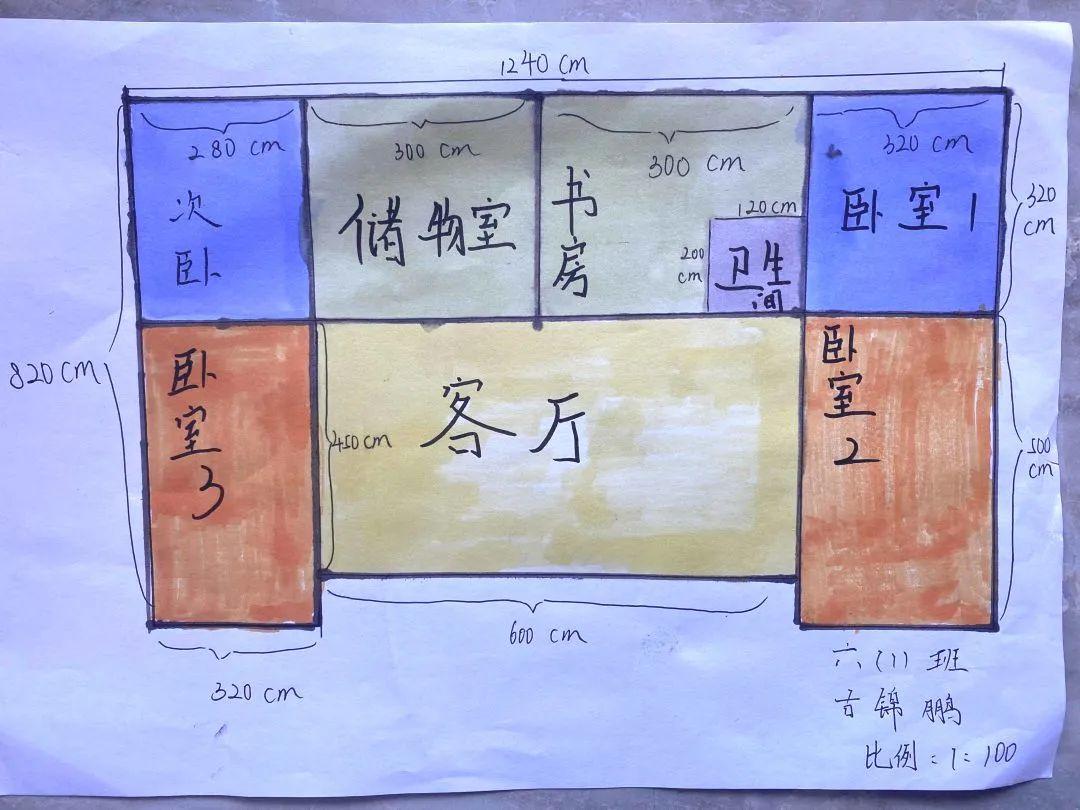 1240 cm
280 cm
300 cm
300 cm
320 cm
次卧
储物室
书房
120 cm
200 cm
卫生间
卧室1
320 cm
820 cm
卧室3
450 cm
客厅
卧室2
500 cm
600 cm
320 cm
六(1)班
古锦鹏
比例:1:100